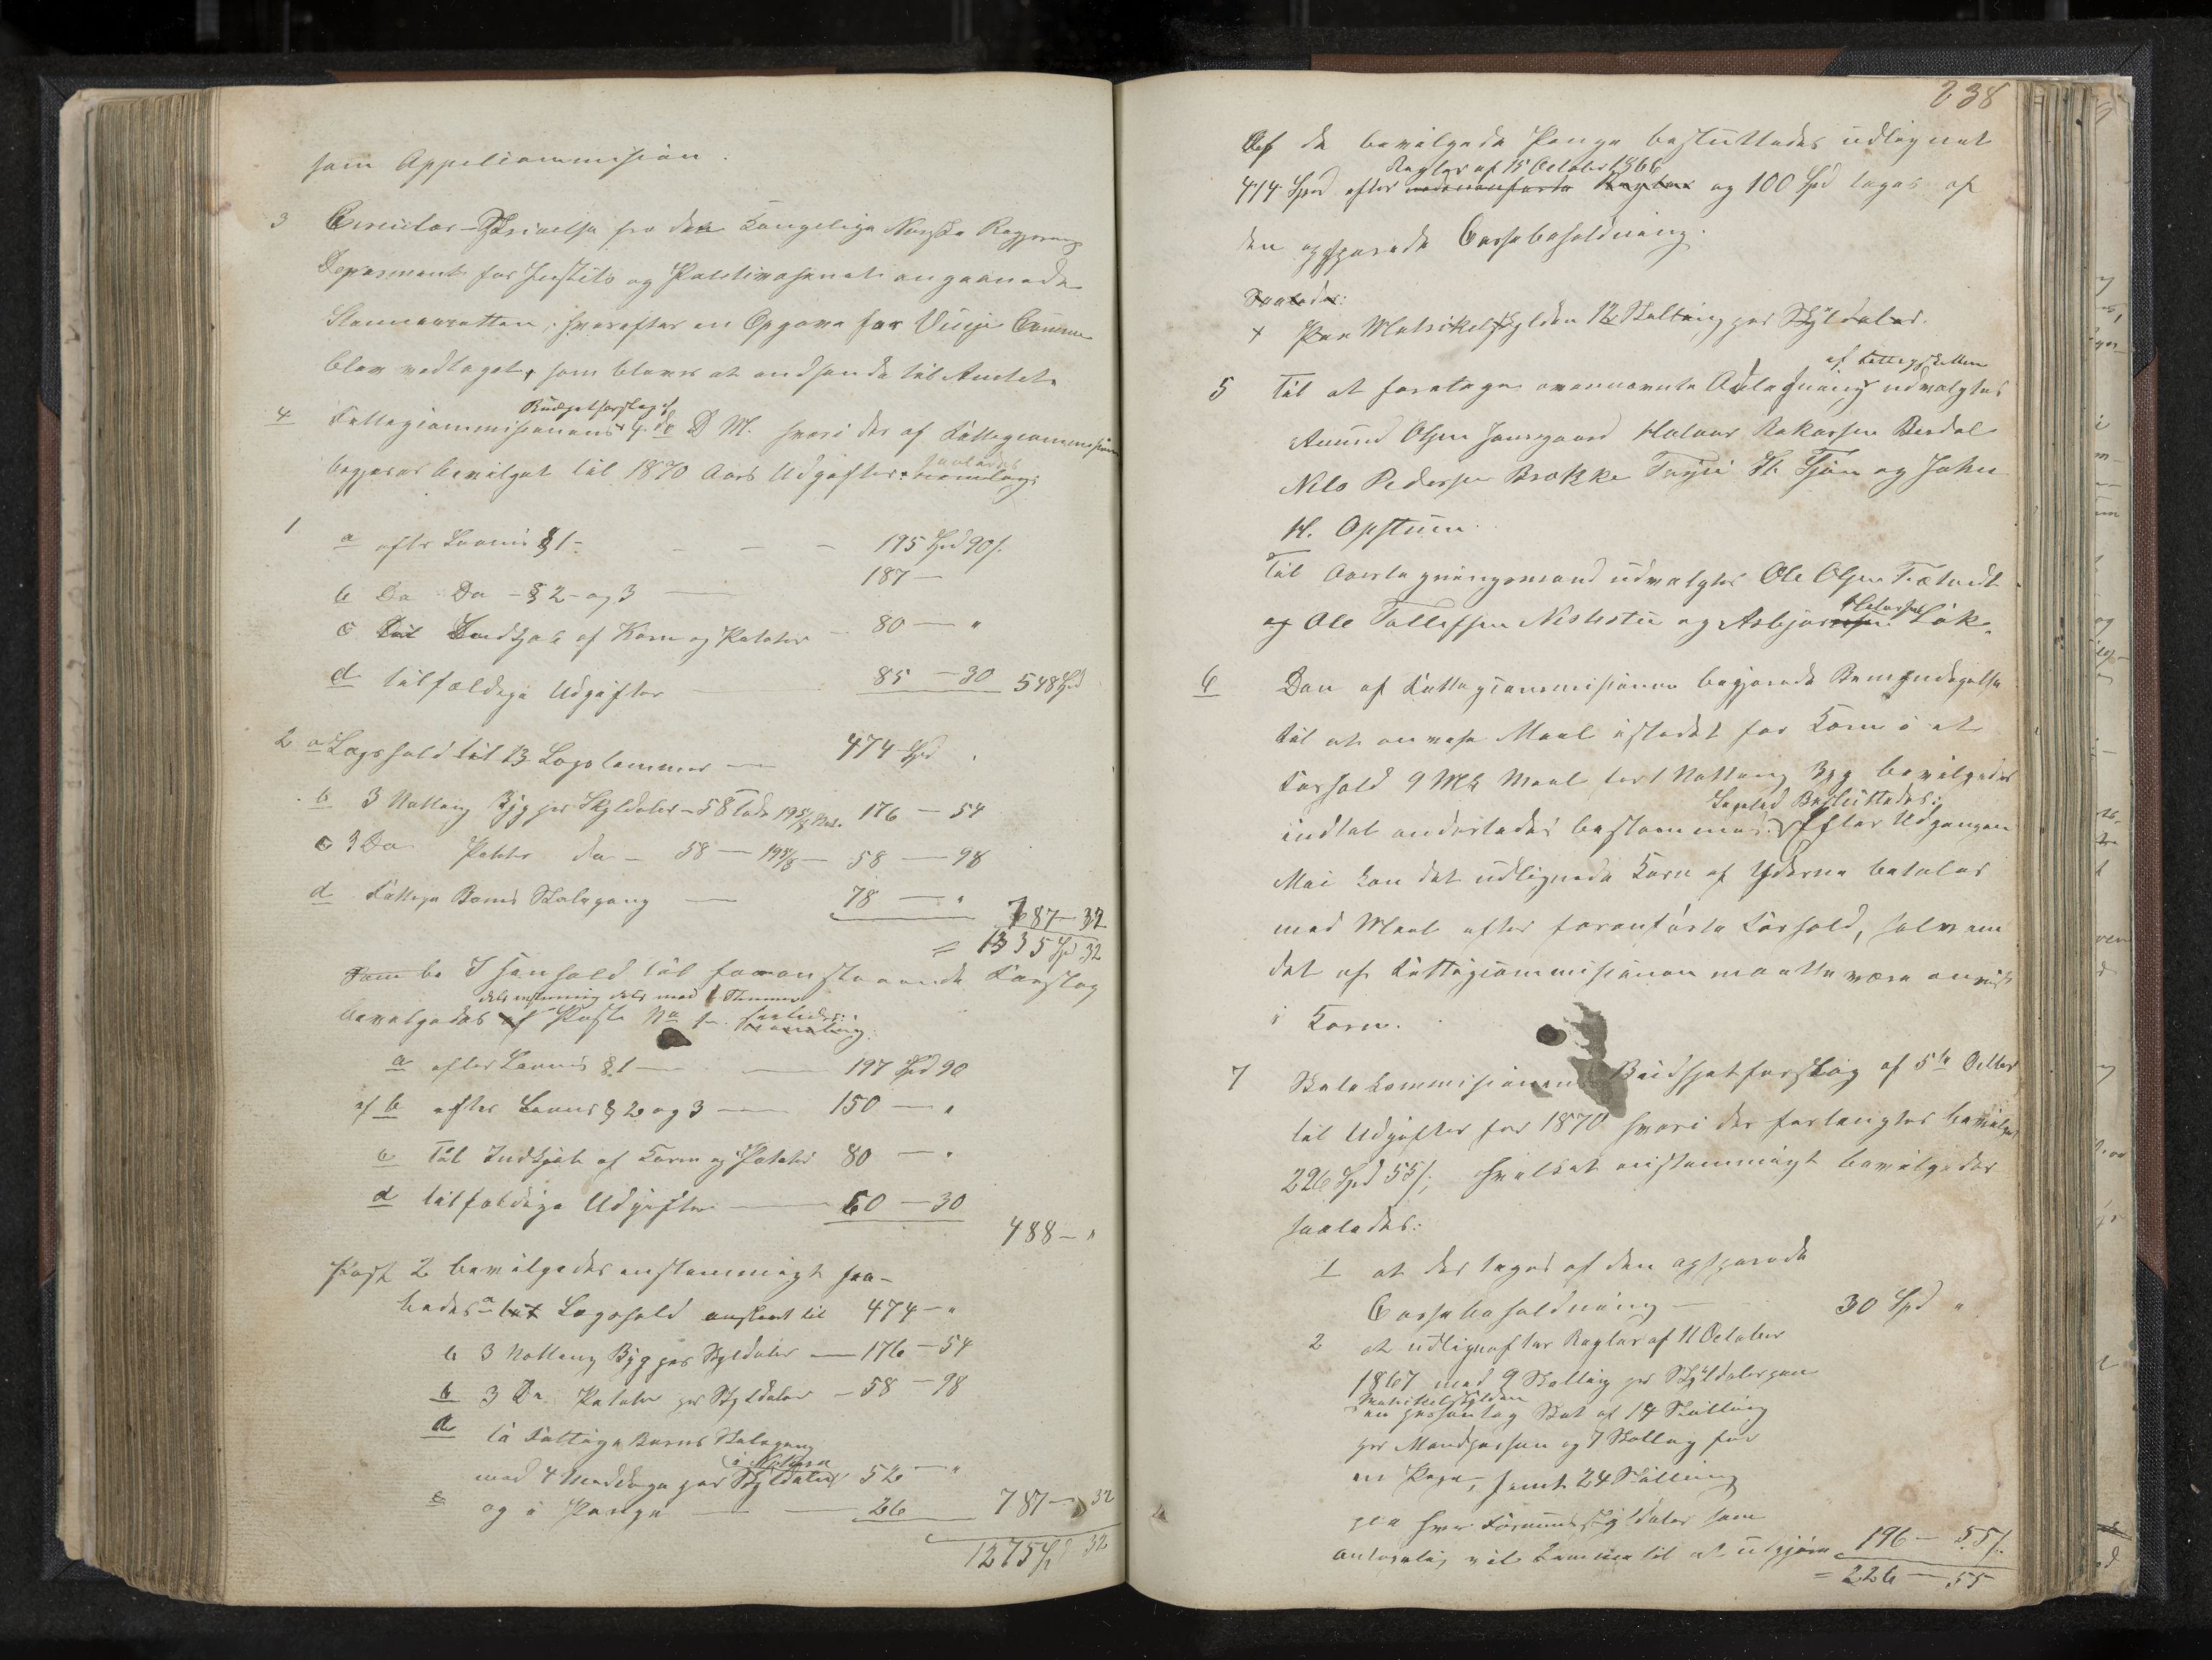 som Appelcommission.
3 Circulær-Skrivelse fra det Kongelige Norske Regjerings
Deparment for Justits og Politivæsenet angaaende
Stemmeretten, hvorefter en Opgave for Vinje Comune
blev vedtaget, som bliver at indsende til Amtet.
4 Fattigcommisionens Budgetforslag af 4de D M. hvori der af Fattigcommissionen
begjæres bevilget til 1870 Aars Udgifter: saaledes
1
a efter Lovens § 1 - - - 195 Spd 90 s.
b Do Do - § 2 - og 3 — 187 —
c Til Indkjøb af Korn og Poteter - 80 — "
d tilfældige Udgifter — 85 — 30 548 Spd
2 a Lægshold til 13 Lægslemmer — 474 Spd
b 3 Notting Byg per Skyldaler - 58 Tdr 195/8 176 — 54
c 3 Do Poteter do - 58 — 195/8 — 58 — 98
d Fattige Børns Skolegang — 78 — " 787 — 32
= 1335 Spd 32
I Henhold til foranstaaende Forslag
bevilgedes dels enstemmig dels med Stemmer Post No 1. saaledes:
a efter Lovens § 1 — — 197 Spd 90
b efter Lovens § 2 og 3 — 150 — "
c Til Indkjøb af Korn og Poteter 80 — "
d tilfældige Udgifter — 60 — 30
488 — "
Post 2 bevilgedes enstemmigt saa-
ledes a Lægshold anslaaet til 474 — "
b 3 Notting Byg per Skyldaler — 176 — 54
b 3 Do Poteter per Skyldaler — 58 — 98
d til Fattige Børns Skolegang
med 4 per Skyldaler 52 — "
e og i Penge — — 26 787 — 32
1275 Spd 32
238
Af de bevilgede Penge besluttedes udlignet
414 Spd efter Regler af 15 October 1866 og 100 Spd tages af
den opsparede Cassebeholdning.
Saaledes:
+ Paa Matrikelskylden 12 Skilling per Skyldaler.
5 Til at foretage ovennævnte Udligning af Fattigskatten udvalgtes
Amund Olsen Jamsgaard Halvor Aakassen Berdal
Nils Pedersen Brokke Tarjei H. Tjøn og John
H. Opstuen.
Til Overligningsmænd udvalgtes Ole Olsen Trætvedt
og Ole Tallefsen Nistestu og Asbjørn Halvorsen Løk.
6 Den af Fattigcommisionen begjærede Bemyndigelse
til at anvise Meel istedet for Korn i et
Forhold 9 Mk Meel for 1 Notting Byg bevilgedes
indtil anderledes bestemmes. Ligeled Besluttedes: Efter Udgangen
Mai kan det udlignede Korn af Yderne betales
med Meel efter foranførte Forhold, selv om
det af Fattigcommisionen maatte være anvist
i Korn.
7 Skolekommisionens Budsjetforslag af 5te Octbr
til Udgifter for 1870 hvori der forlangtes bevilget
226 Spd 55 s, hvilket enstemmigt bevilgedes
saaledes:
1 at der tages af den opsparede
Cassebeholdning — 30 Spd "
2 at udligne efter Regler af 11 October
1867 med 9 Skilling pr Skyldaler paa
Matrikelskylden
en personlig Skat af 14 Skilling
per Mandperson og 7 Skilling for
en Pige, samt 24 Skilling
paa hver Formuesskyldaler som
antagelig vil komme til at udgjøre 196 — 55 s.
= 226 — 55